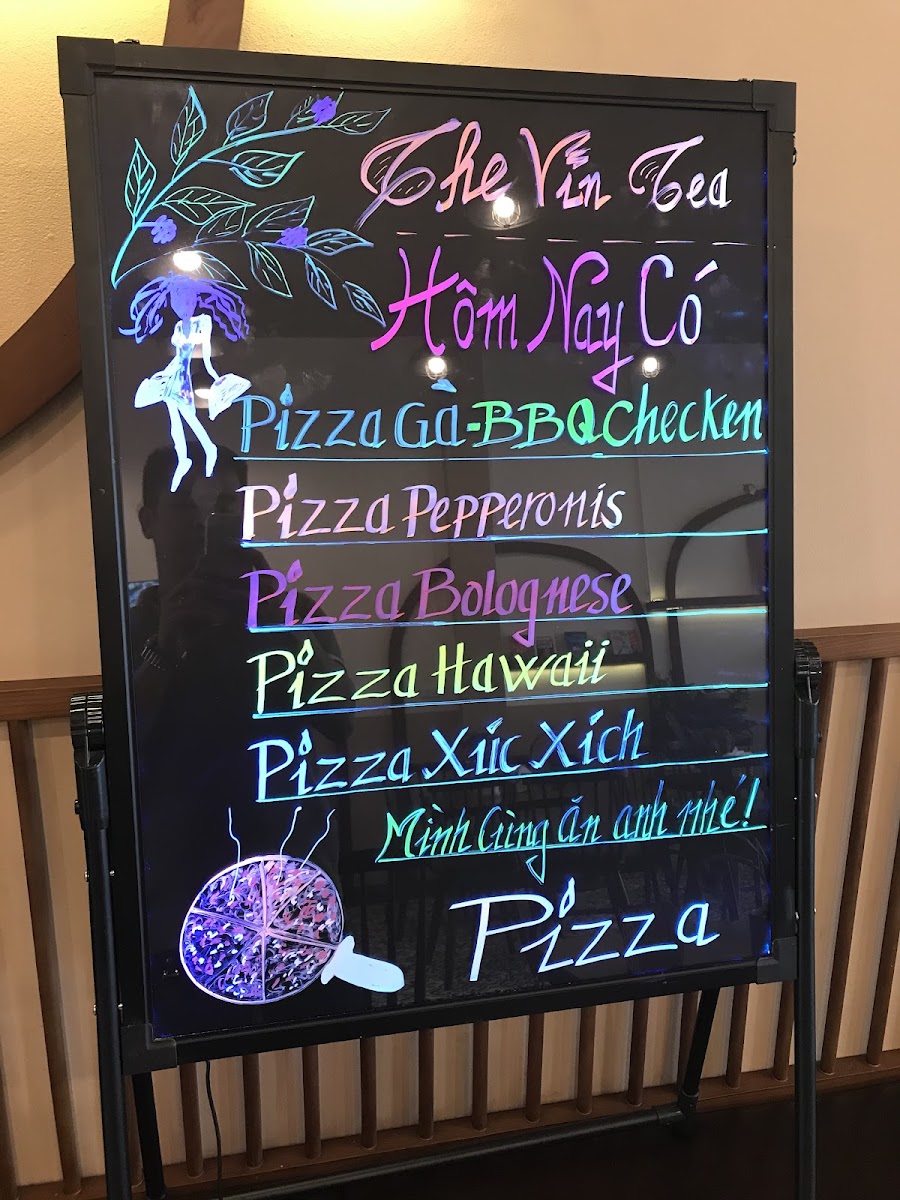 The Vin Tea
Hôm Nay Có
Pizza Gà-BBQ Checken
Pizza Pepperonis
Pizza Bolognese
Pizza Hawaii
Pizza Xúc Xích
Mình Cùng ăn anh nhé!
Pizza